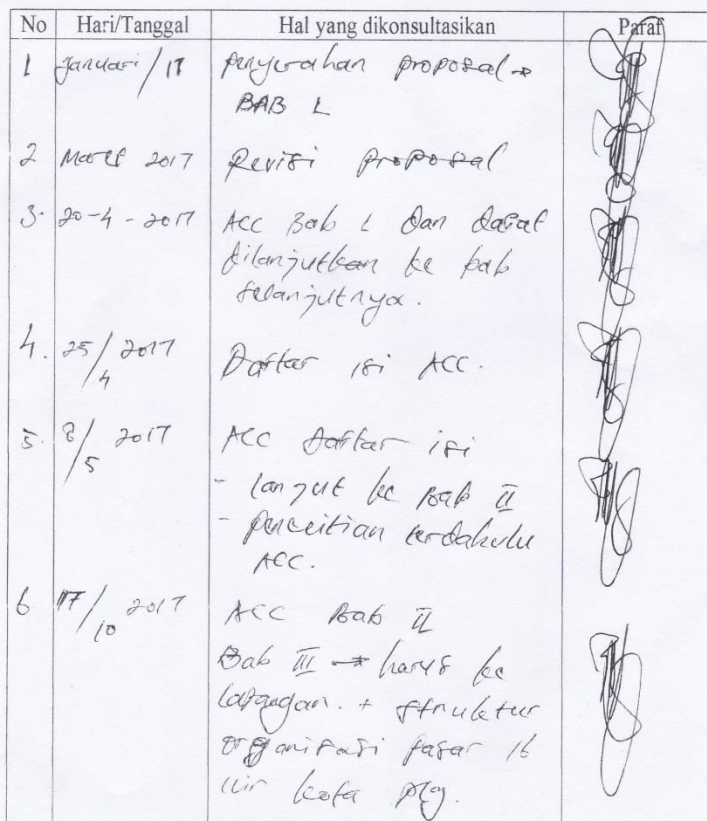 No Hari/Tanggal Hal yang dikonsultasikan Paraf
1 Januari / 17 penyerahan proposal →
BAB I
2 Maret 2017 Revisi proposal
3. 20-4-2017 Acc Bab I dan dapat
dilanjutkan ke bab
selanjutnya.
4. 25/4 2017 Daftar isi ACC.
5. 8/5 2017 Acc Daftar isi
- lanjut ke Bab II
- penelitian terdahulu
ACC.
6 17/10 2017 Acc Bab II
Bab III → harus ke
lapangan. + struktur
organisasi pasar 16
ilir kota plg.